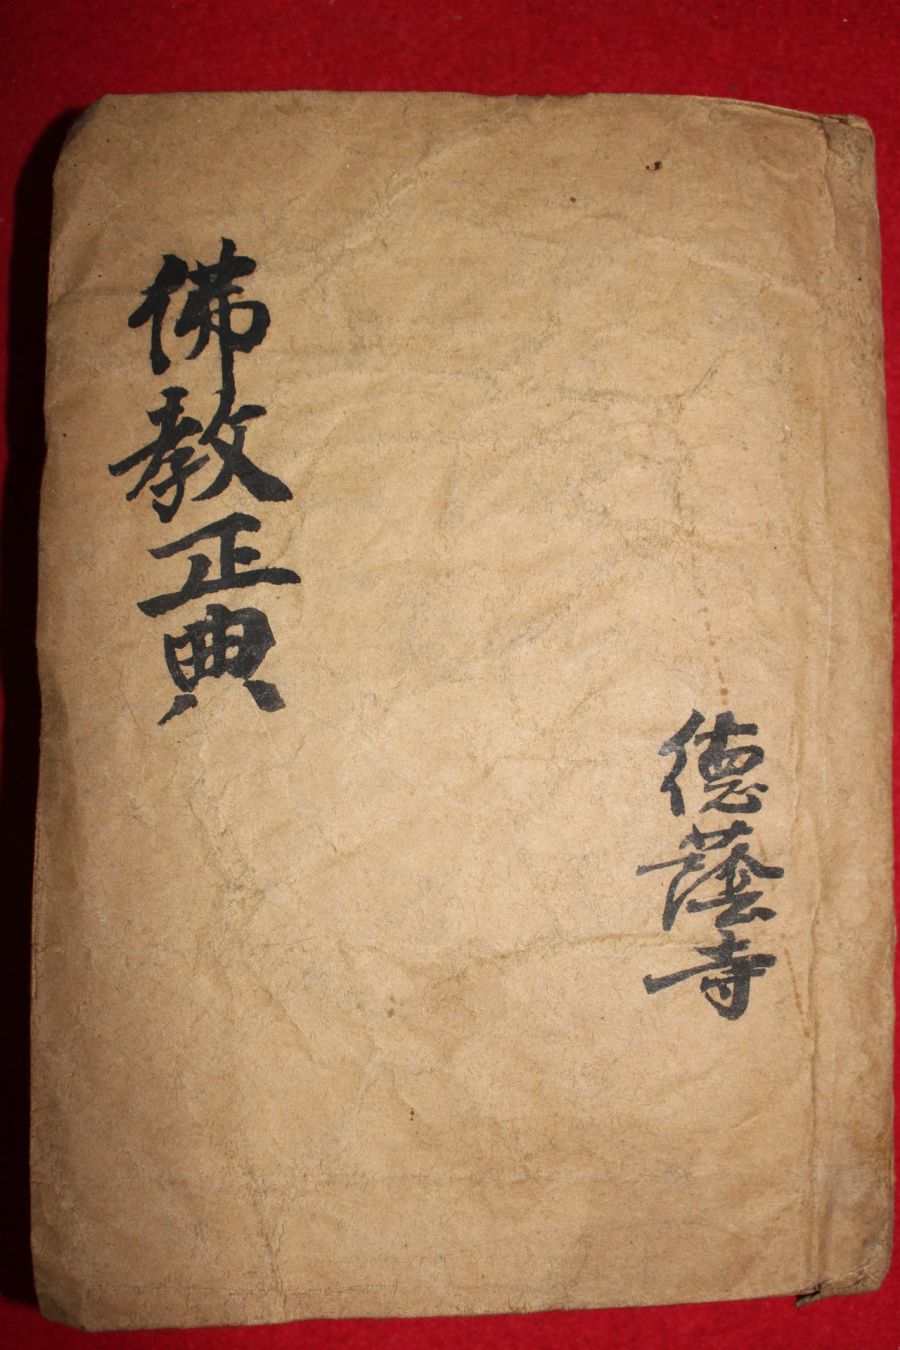 佛教正典
德蔭寺